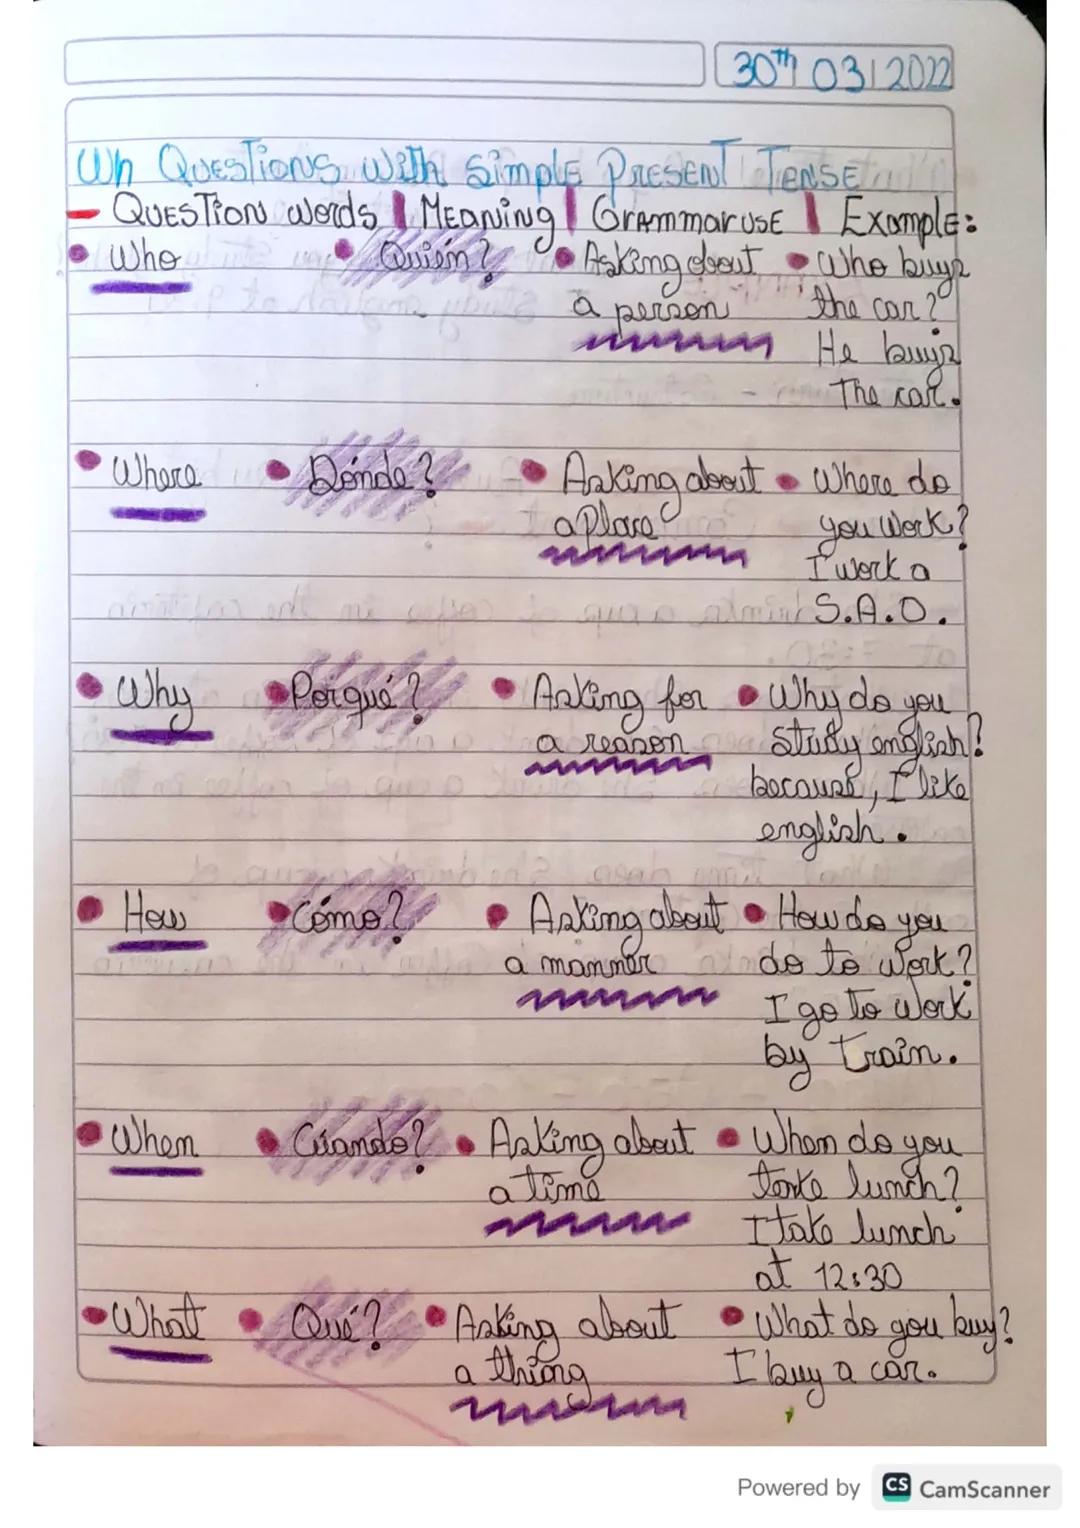 30th 03 | 2022
Wh Questions With Simple Present Tense
- Question words | Meaning | Grammar use | Example:
Who Quién? Asking about Who buys
a person the car?
He buys
The car.
Where Dónde? Asking about Where do
a Place you work?
I work a
S.A.O.
Why Porqué? Asking for Why do you
a reason study english?
because, I like
english.
How Cómo? Asking about How do you
a manner do to work?
I go to work
by Train.
When Cuándo? Asking about When do you
a time take lunch?
I take lunch
at 12:30
What Qué? Asking about What do you buy?
a thing I buy a car.
Powered by CS CamScanner